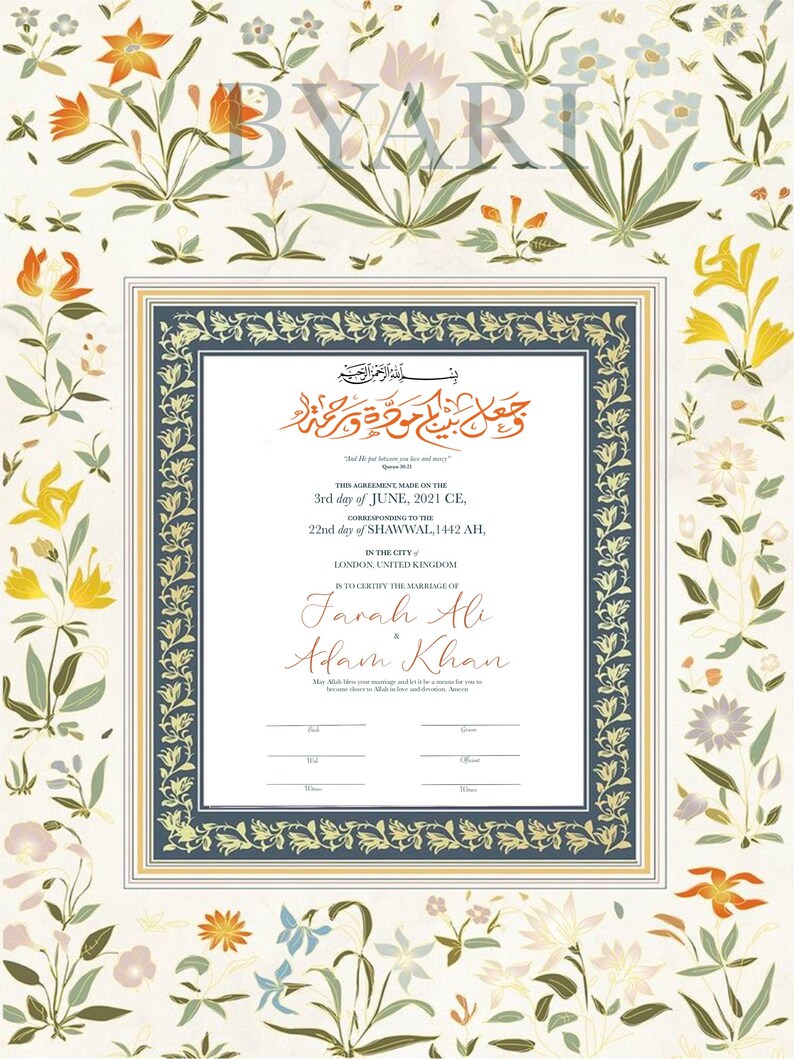 BYARI
بسم الله الرحمن الرحيم
وجعل بينكم مودة ورحمة
"And He put between you love and mercy"
Quran 30:21
THIS AGREEMENT, MADE ON THE
3rd day of JUNE, 2021 CE,
CORRESPONDING TO THE
22nd day of SHAWWAL,1442 AH,
IN THE CITY of
LONDON, UNITED KINGDOM
IS TO CERTIFY THE MARRIAGE OF
Farah Ali
&
Adam Khan
May Allah bless your marriage and let it be a means for you to
become closer to Allah in love and devotion. Ameen
Bride Groom
Wali Officiant
Witness Witness